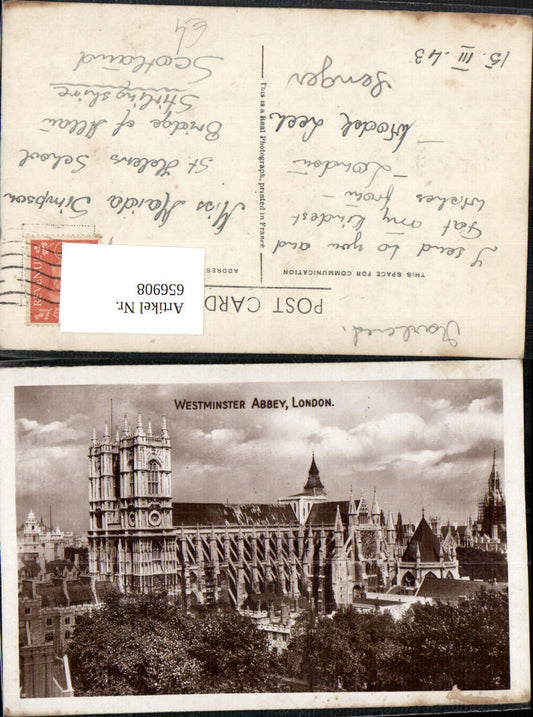 POST CARD
THIS SPACE FOR COMMUNICATION
ADDRES
I send to you and
my kindest
wishes from –
– London –
15. III. 43
This is a Real Photograph, printed in France
Miss Maida Simpson
St Helens School
Bridge of Allan
Stirlingshire
Scotland
64
REVENUE
Artikel Nr.
656908
WESTMINSTER ABBEY, LONDON.